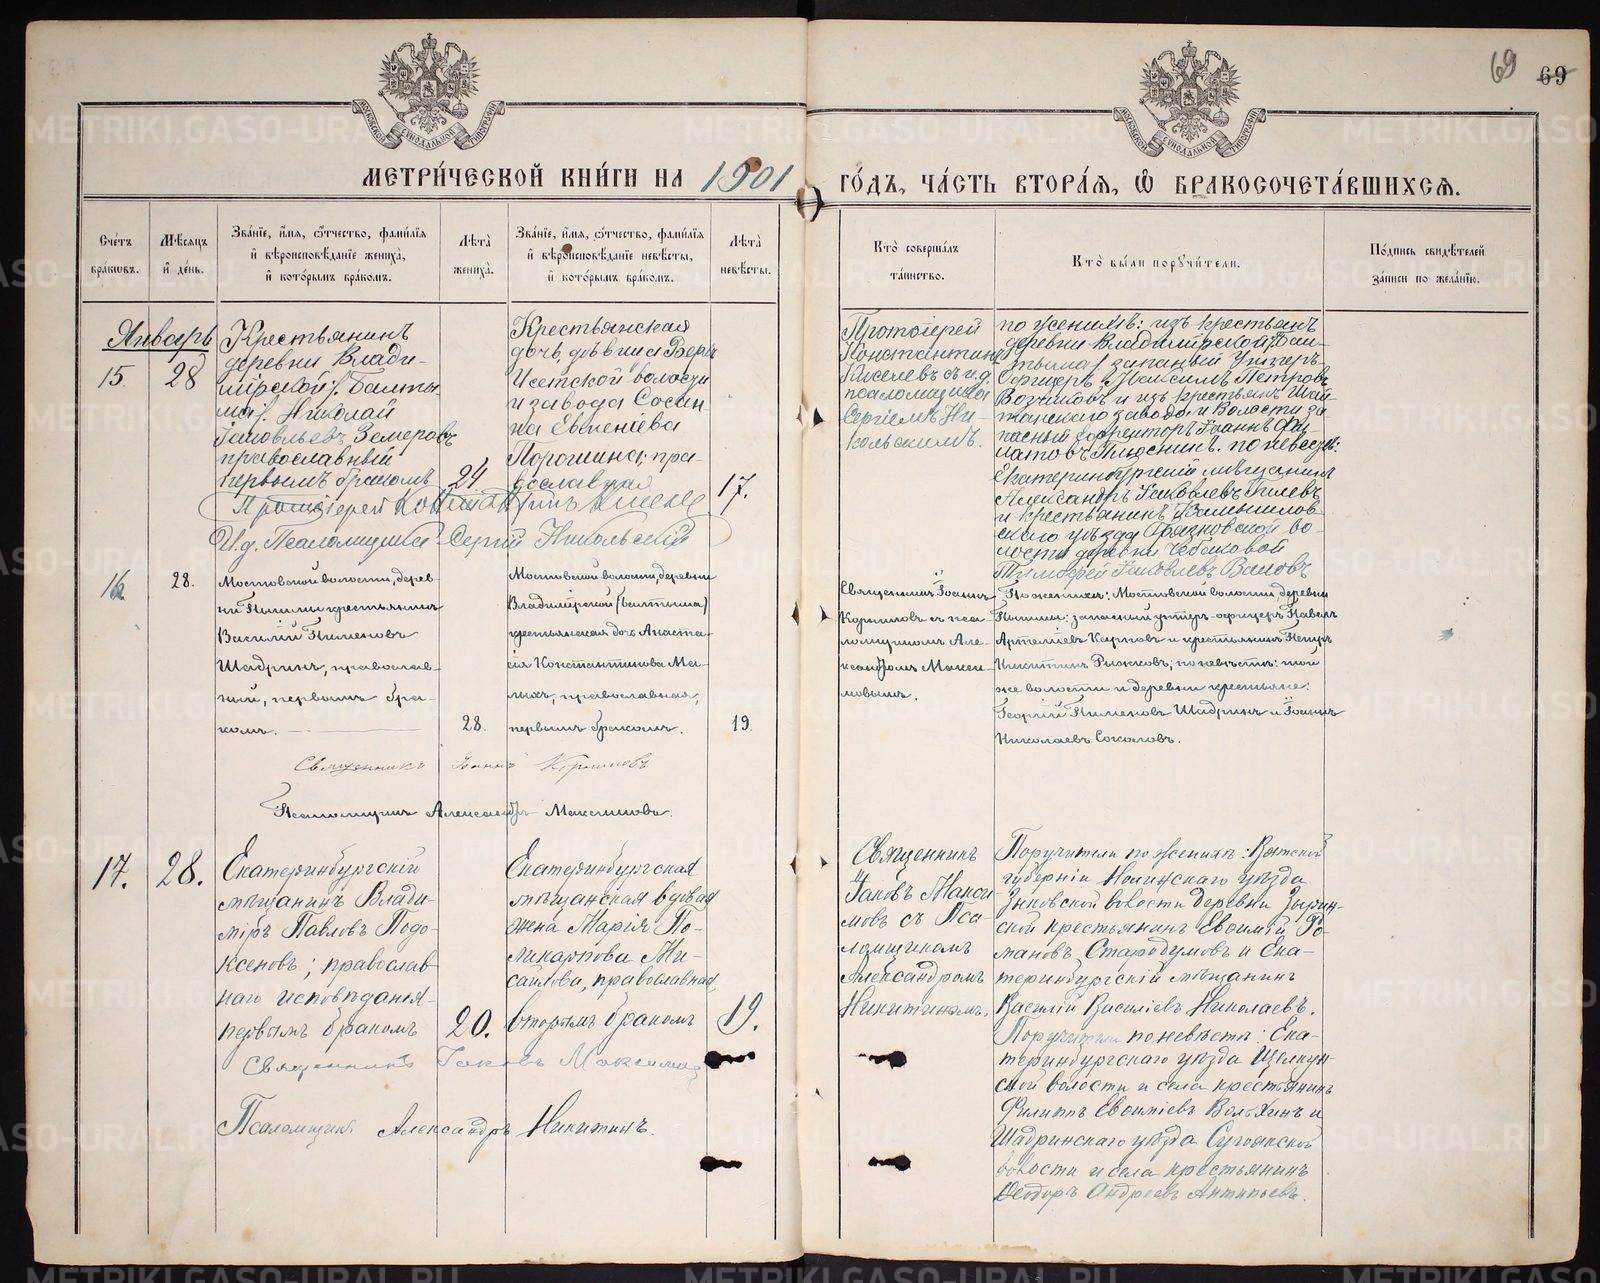 69 69
МОСКОВСКОЙ СѴНОДАЛЬНОЙ ТИПОГРАФІИ
МОСКОВСКОЙ СѴНОДАЛЬНОЙ ТИПОГРАФІИ
МЕТРИ́ЧЕСКОЙ КНИ́ГИ НА 1901 ГО́ДЪ, ЧА́СТЬ ВТОРА́Ѧ, Ѡ҆ БРАКОСОЧЕТА́ВШИХСѦ.
Сче́тъ
бра́кѡвъ.
Мѣ́сѧцъ
и҆ де́нь.
Зва́нїе, и҆́мѧ, ѻ҆́тчество, фами́лїѧ
и҆ вѣроисповѣ́данїе жениха̀,
и҆ кото́рымъ бра́комъ.
Лѣ́та
жениха̀.
Зва́нїе, и҆́мѧ, ѻ҆́тчество, фами́лїѧ
и҆ вѣроисповѣ́данїе невѣ́сты,
и҆ кото́рымъ бра́комъ.
Лѣ́та
невѣ́сты.
Кто̀ соверша́лъ
та́инство.
Кто̀ бы́ли порꙋчи́тели.
По́дпись свидѣ́телей
за́писи по жела́нїю.
Январь
15. 28
Крестьянинъ
деревни Влади-
мірской /Балты-
ма/. Николай
Іаковлевъ Земеровъ
православный
первымъ бракомъ
24
Крестьянская
дочь, дѣвица
Исетской волости
и завода Сосан-
на Евгеніева
Порошина; пра-
вославная
17.
Протоіерей
Константинъ
Киселевъ съ и.д.
псаломщика
Сергіемъ Ни-
кольскимъ.
по женихѣ: изъ крестьянъ
деревни Владимірской /Бал-
тыма/ запасный Унтеръ-
Офицеръ Максимъ Петровъ
Возчиковъ и изъ крестьянъ Шай-
танскаго завода и волости за-
пасный Ефрейторъ Іоаннъ Фи-
латовъ Плюснинъ. по невѣстѣ:
Екатеринбургскій мѣщанинъ
Александръ Іаковлевъ Гилевъ
и крестьянинъ Камышлов-
скаго уѣзда Грязновской во-
лости деревни Чебаковой
Тимоѳей Іаковлевъ
Протоіерей Константинъ Киселевъ
И.д. Псаломщика Сергій Никольскій
16. 28.
Мостовской волости, дерев-
ни крестьянинъ
Василій Пименовъ
Шадринъ, православ-
ный, первымъ бра-
комъ.
28.
Мостовской волости, деревни
Владимірской (Балтыма)
крестьянская дочь Анаста-
сія Константинова Ма-
лыхъ, православная,
первымъ бракомъ.
19.
Священникъ Іоаннъ
Корниловъ съ пса-
ломщикомъ Але-
ксандромъ Макси-
мовымъ.
По женихѣ: Мостовской волости, деревни
запасный унтеръ-офицеръ Павелъ
Артеміевъ Карповъ и крестьянинъ Петръ
Никитинъ Рыжковъ; по невѣстѣ: той
же волости и деревни крестьяне:
Георгій Пименовъ Шадринъ и Іоаннъ
Николаевъ Соколовъ.
Священникъ Іоаннъ Корниловъ
Псаломщикъ Александръ Максимовъ.
17. 28.
Екатеринбургскій
мѣщанинъ Влади-
міръ Павловъ Подо-
ксеновъ; православ-
наго исповѣданія
первымъ бракомъ
20.
Екатеринбургская
мѣщанская вдовая
жена Марія По-
ликарпова Ми-
саилова, православная,
вторымъ бракомъ
19.
Священникъ
Іаковъ Макси-
мовъ съ Пса-
ломщикомъ
Александромъ
Никитинымъ.
Поручители по женихѣ: Вятской
губерніи Нолинскаго уѣзда
Зыковской волости деревни Зырян-
ской крестьянинъ Евѳимій Ро-
мановъ Стародумовъ и Ека-
теринбургскій мѣщанинъ
Василій Василіевъ Николаевъ.
Поручители по невѣстѣ: Ека-
теринбургскаго уѣзда Щелкун-
ской волости и села крестьянинъ
Филиппъ Евѳиміевъ Волохинъ и
Шадринскаго уѣзда Сугоякской
волости и села крестьянинъ
Ѳеодоръ Андреевъ Антипьевъ.
Священникъ Іаковъ Максимовъ
Псаломщикъ Александръ Никитинъ.
METRIKI.GASO-URAL.RU